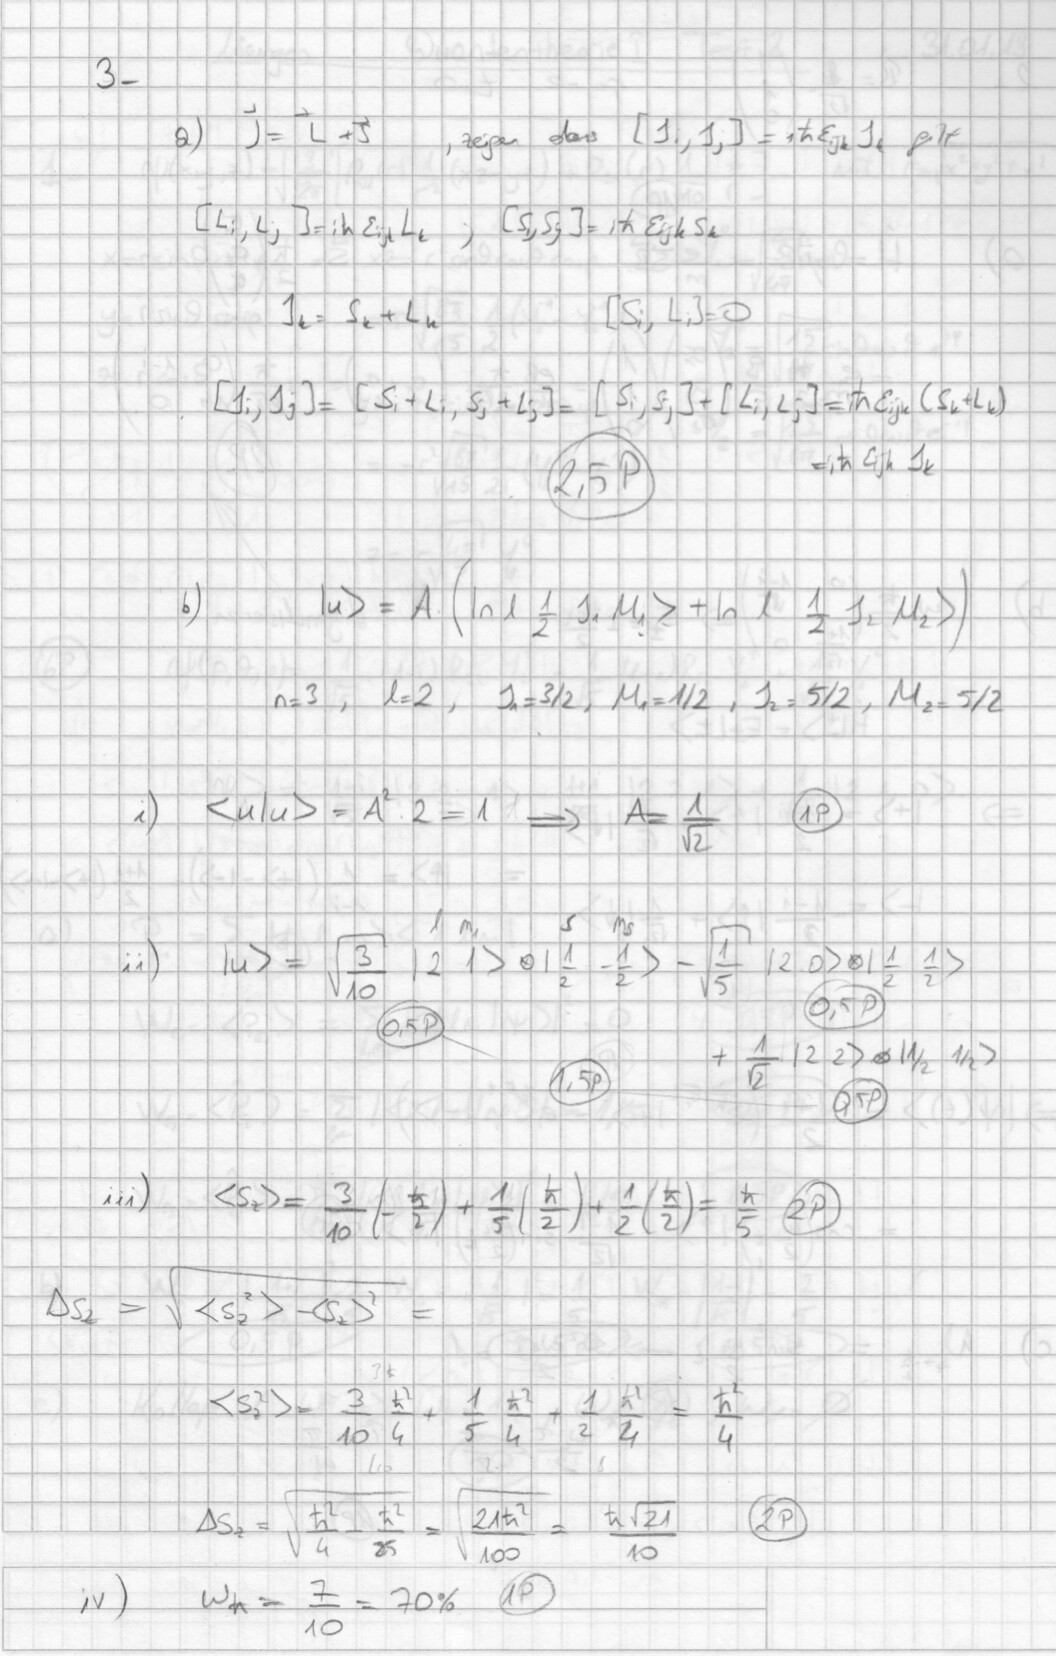 3-
a) J⃗ = L⃗ + S⃗ , zeigen dass [Ji, Jj] = iħ εijk Jk gilt
[Li, Lj] = iħ εijk Lk ; [Si, Sj] = iħ εijk Sk
Jk = Sk + Lk [Si, Li] = 0
[Ji, Jj] = [Si + Li, Sj + Lj] = [Si, Sj] + [Li, Lj] = iħ εijk (Sk + Lk)
= iħ εijk Jk
2,5P
b) |u> = A · (|n l 1/2 J1 M1> + |n l 1/2 J2 M2>)
n=3 , l=2 , J1=3/2, M1=1/2 , J2=5/2 , M2=5/2
i) <u|u> = A² · 2 = 1 ⟹ A = 1/√2 1P
l ml s ms
ii) |u> = √(3/10) |2 1> ⊗ |1/2 -1/2> - √(1/5) |2 0> ⊗ |1/2 1/2>
0,5P 0,5P
+ 1/√2 |2 2> ⊗ |1/2 1/2>
1,5P 0,5P
iii) <Sz> = 3/10 (-ħ/2) + 1/5 (ħ/2) + 1/2 (ħ/2) = ħ/5 2P
ΔSz = √(<Sz²> - <Sz>²) =
<Sz²> = 3/10 ħ²/4 + 1/5 ħ²/4 + 1/2 ħ²/4 = ħ²/4
ΔSz = √(ħ²/4 - ħ²/25) = √(21ħ²/100) = ħ√21/10 2P
iv) Wħ = 7/10 = 70% 1P